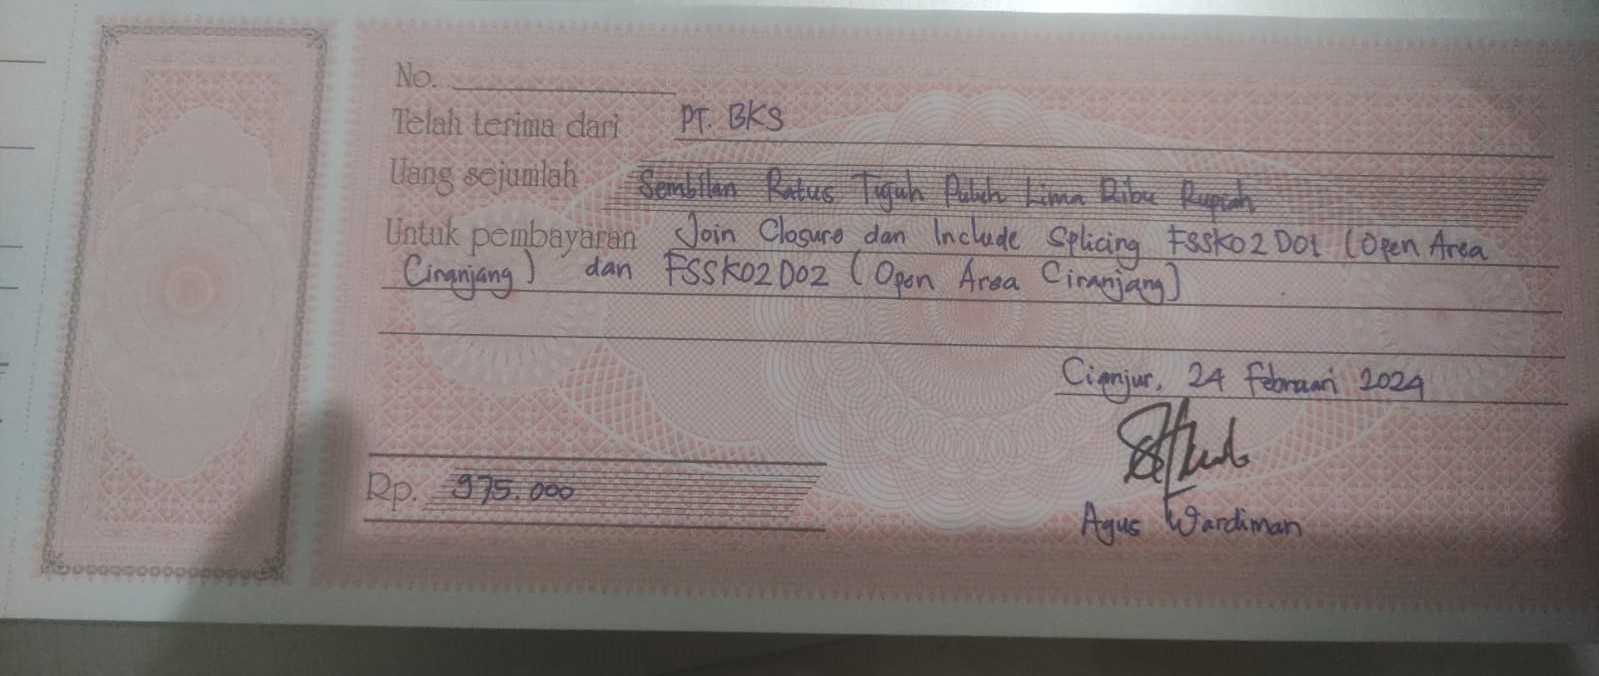 No.
Telah terima dari PT. BKS
Uang sejumlah Sembilan Ratus Tujuh Puluh Lima Ribu Rupiah
Untuk pembayaran Join Closure dan Include Splicing FSSK02D01 (Open Area
Ciranjang) dan FSSK02D02 (Open Area Ciranjang)
Cianjur, 24 Februari 2024
Rp. 975.000
Agus Wardiman